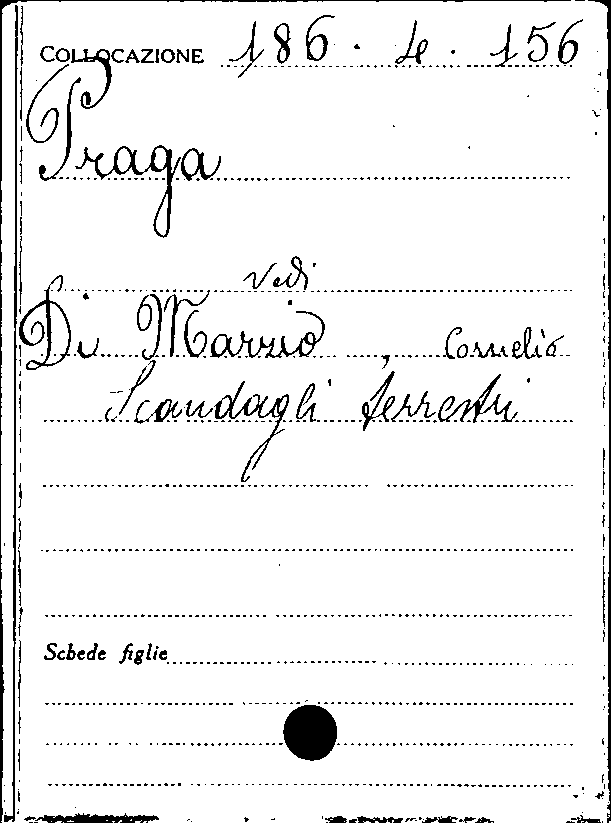 COLLOCAZIONE 186 · 4 · 156
Praga
vedi
Di Marzio , Cornelio
Scandagli terrestri
Schede figlie